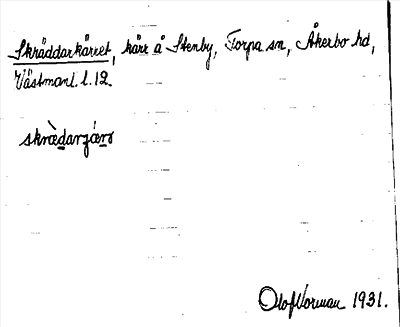 Skräddarkärret, kärr å Stenby, Torpa sn, Åkerbo hd,
Västmanl. l. 12.
Olof Vorman 1931.